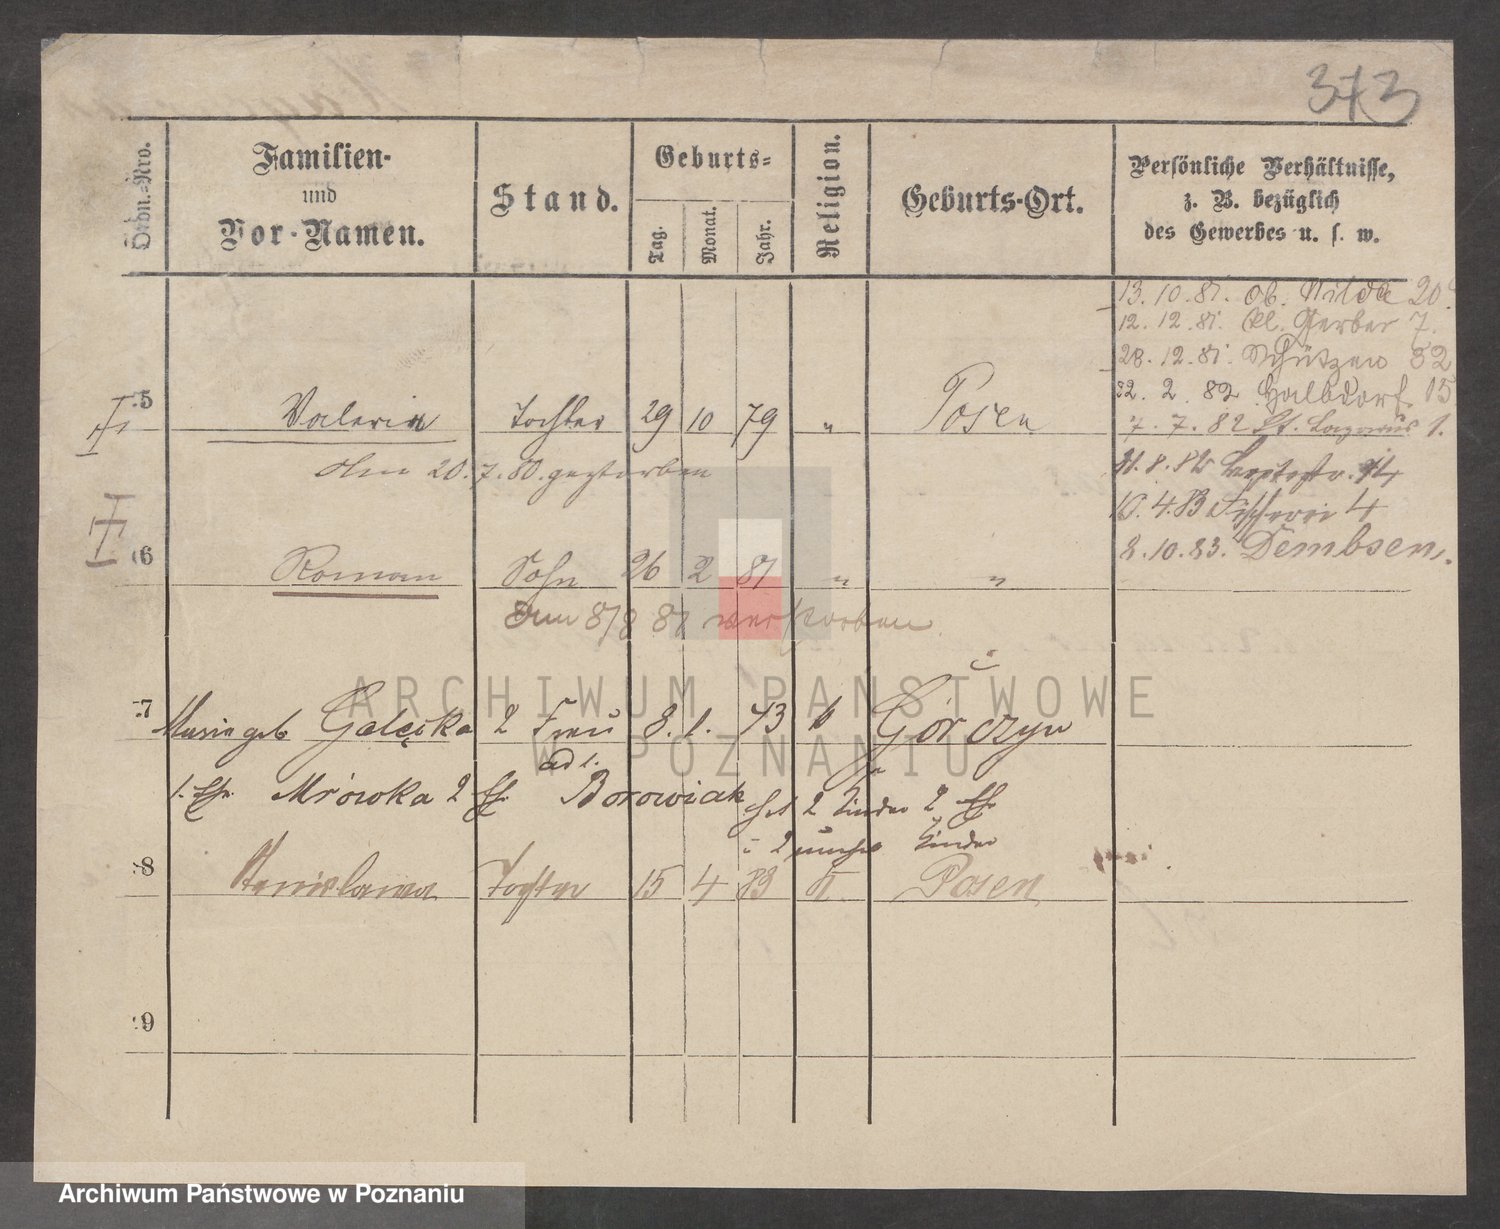 373
Ordn.-Nro.
Familien-
und
Vor-Namen.
Stand.
Geburts-
Tag.
Monat.
Jahr.
Religion.
Geburts-Ort.
Persönliche Verhältnisse,
z. B. bezüglich
des Gewerbes u. s. w.
13. 10. 81. Ob. Wilda 20.
12. 12. 81. Kl. Gerber 7.
28. 12. 81. Schützen 32
22. 2. 82 Halbdorf. 15
7. 7. 82 St. Lazarus 1.
5 Valeria Tochter 29 10 79 " Posen
11. 8. 82
Am 20. 7. 80. gestorben
10. 4. 83 Fischerei 4
8. 10. 83. Dembsen.
6 Roman Sohn 26 2 81 " "
Am 8/8 81 verstorben
7 Marie geb Galęska 2 Frau 8. 1. 43 k Górczyn
ad 1.
1. Eh. Mrówka 2 Eh. Borowiak hat 2 Kinder 2 Eh
2 Kinder
8 Stanislawa Tochter 15 4 83 k. Posen
9
ARCHIWUM PAŃSTWOWE
W POZNANIU
Archiwum Państwowe w Poznaniu